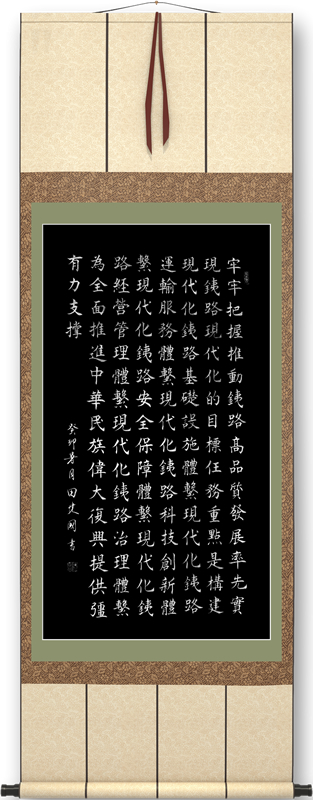 牢牢把握推動銕路高品質發展率先實
現銕路現代化的目標任務重點是構建
現代化銕路基礎設施體繫現代化銕路
運輸服務體繫現代化銕路科技創新體
繫現代化銕路安全保障體繫現代化銕
路經營管理體繫現代化銕路治理體繫
為全面推進中華民族偉大復興提供彊
有力支撑
癸卯月田書